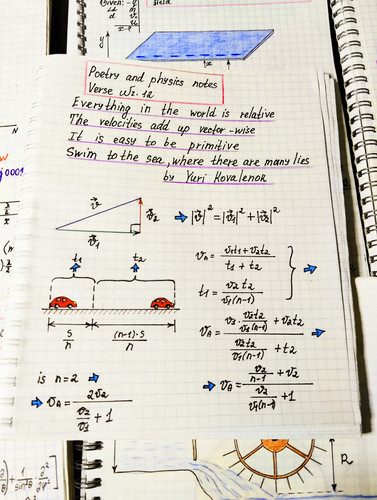 Given:
field
y
x
Poetry and physics notes
Verse №. 12
Everything in the world is relative
The velocities add up vector-wise
It is easy to be primitive
Swim to the sea, where there are many lies
by Yuri Kovalenok
v⃗₃ v⃗₂ v⃗₁
|v⃗|² = |v⃗₁|² + |v⃗₂|²
v_A = (v₁t₁ + v₂t₂) / (t₁ + t₂)
t₁ t₂
t₁ = v₂t₂ / (v₁(n-1))
S/n (n-1)·S/n
v_A = (v₁ · v₂t₂/(v₁(n-1)) + v₂t₂) / (v₂t₂/(v₁(n-1)) + t₂)
is n = 2
v_A = 2v₂ / (v₂/v₁ + 1)
v_A = (v₂/(n-1) + v₂) / (v₂/(v₁(n-1)) + 1)
R